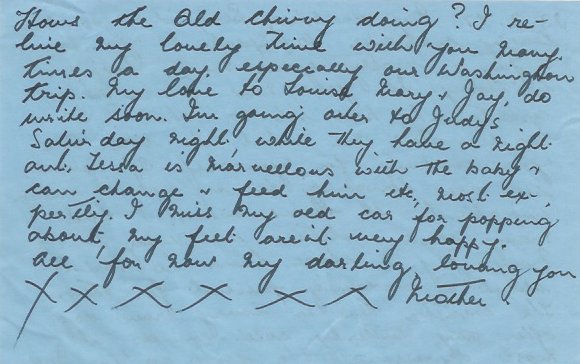 Hows the Old Chivvy doing? I re-
live my lovely time with you many
times a day, especially our Washington
trip. My love to Louise Mary & Jay, do
write soon. I'm going over to Judy's
Saturday night while they have a night
out. Tessa is marvellous with the baby &
can change & feed him etc, most ex-
pertly. I miss my old car for popping
about, my feet arent very happy.
All for now my darling, loving you
X X X X X X Mother.